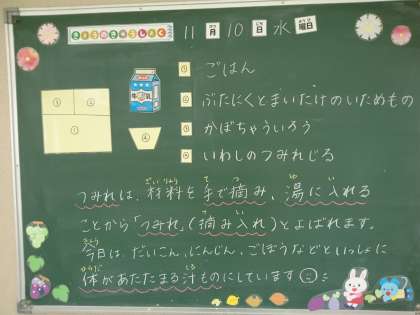 きょうのきゅうしょく 11月10日水曜日
① ごはん
② ぶたにくとまいたけのいためもの
③ かぼちゃういろう
④ いわしのつみれじる
牛乳
③ ②
① ④
つみれは、材料を手で摘み、湯に入れる
ことから「つみれ」(摘み入れ)とよばれます。
今日は、だいこん、にんじん、ごぼうなどといっしょに
体があたたまる汁ものにしています